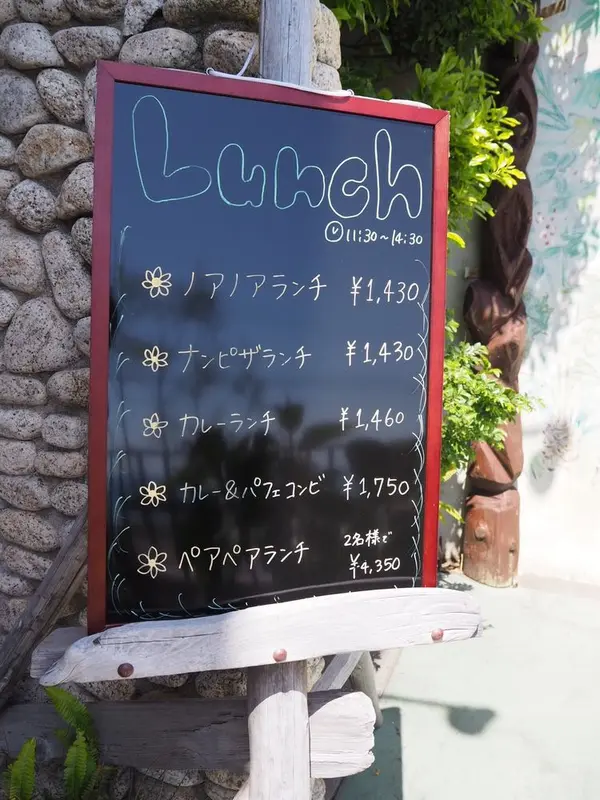 Lunch
11:30~14:30
ノアノアランチ ¥1,430
ナンピザランチ ¥1,430
カレーランチ ¥1,460
カレー&パフェコンビ ¥1,750
ペアペアランチ 2名様で ¥4,350